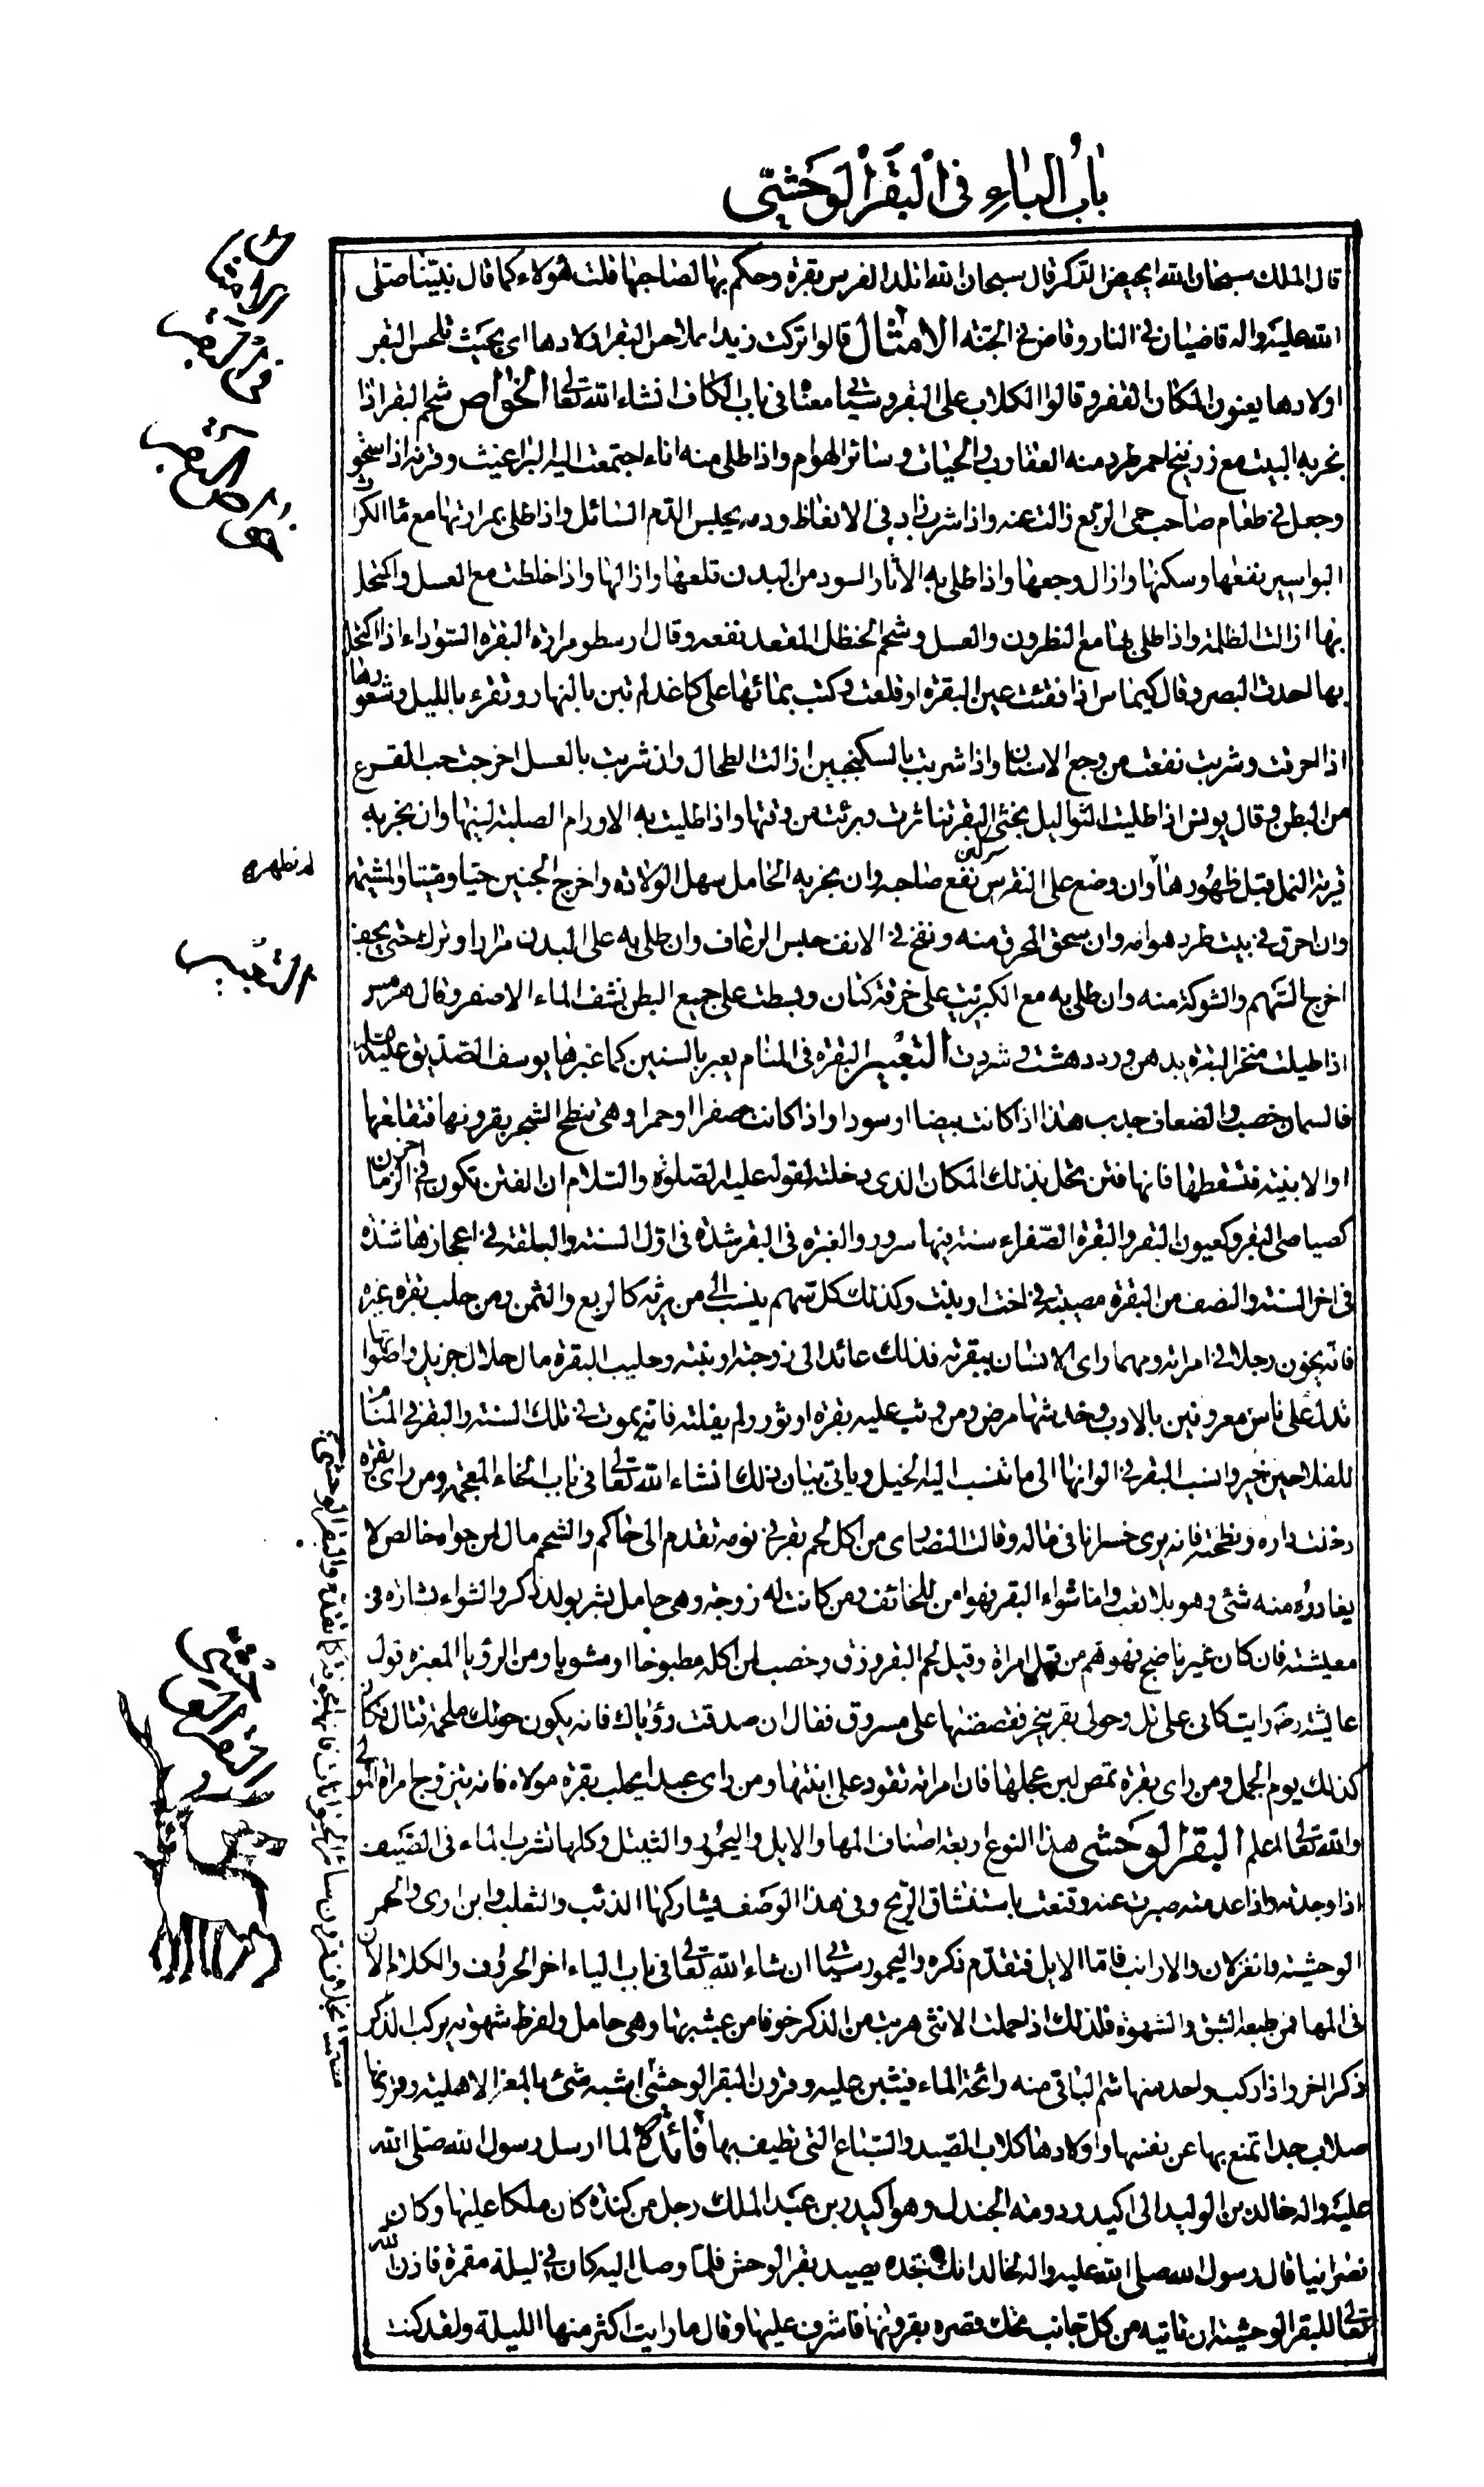 باب الباء في البقر الوحشي
قال الملك سبحان الله ايحيض الذكر قال سبحان الله اتلد الفرس بقرة وحكم بها لصاحبها قلت هؤلاء كما قال نبينا صلى
الله عليه واله قاضيان في النار وقاض في الجنة الامثال قالوا تركت زيدا بملاحس البقر اولادها اى بحيث تلحس البقر
اولادها يعنون المكان القفر وقالوا الكلاب على البقر وسياتى معناه فى باب الكاف انشاء الله تعالى الخواص شحم البقر اذا
بخر به البيت مع زرنيخ احمر طرد منه العقارب والحيات وسائر الهوام واذا طلى منه اناء اجتمعت اليه البراغيث وقرنه اذا سحق
وجعل فى طعام صاحب حمى الربع زالت عنه واذا شرب زاد فى الانعاظ ودمه يحبس الدم السائل واذا طلى بمرارتها مع ماء الكراث
البواسير نفعها وسكنها وازال وجعها واذا طلى به الاثار السود من البدن قلعها وازالها واذا خلطت مع العسل واكتحل
بها ازالت الظلمة واذا طلى بها مع النطرون والعسل وشحم الحنظل المقعد نفعه وقال ارسطو مرارة البقرة السوداء اذا اكتحل
بها احدت البصر وقال كيماس اذا فقئت عين البقرة او قلعت وكتب بمائها على كاغد لم تبن بالنهار وتقرء بالليل وشعورها
اذا احرقت وشربت نفعت من وجع الاسنان واذا شربت بالسكنجبين ازالت الطحال وان شربت بالعسل اخرجت حب القرع
من البطن وقال يونس اذا طليت الثواليل بخثى البقر تناثرت وبرئت من وقتها واذا طليت به الاورام الصلبة لينها وان بخر به
سركين
قرية النمل قبل ظهورها وان وضع على النقرس نفع صاحبه وان بخر به الحامل سهل الولادة واخرج الجنين حيا وميتا والمشيمة
وان احرق فى بيت طرد هوامه وان سحق المحرق منه ونفخ فى الانف حبس الرعاف وان طلى به على البدن مرارا وترك حتى يجف
اخرج السهم والشوكة منه وان طلى به مع الكبريت على خرقة كتان وبسطت على جميع البطن نشف الماء الاصفر وقال هرمس
اذا طليت منخر البقرة بدهن ورد دهشت وشردت التعبير البقرة فى المنام يعبر بالسنين كما عبرها يوسف الصديق عليه السلام
فالسمان خصب والضعاف جدب هذا اذا كانت بيضا او سودا واذا كانت صفرا او حمرا وهى تنطح الشجر بقرونها فتقلعها
او الابنية فتسقطها فانها فتن تحل بذلك المكان الذى دخلته لقوله عليه الصلوة والسلام ان الفتن تكون فى اخر الزمان
كصياصى البقر وكعيون البقر والبقرة الصفراء سنة فيها سرور والغرة فى البقر شدة فى اول السنة والبلقة فى اعجازها شدة
فى اخر السنة والنصف من البقرة مصيبة فى اخت او بنت وكذلك كل سهم ينسب الى من يرثه كالربع والثمن ومن حلب بقرة غيره
فانه يخون رجلا فى امراته ومهما راى الانسان ببقرته فذلك عائد الى زوجته او بنته وحليب البقرة مال حلال جزيل واصواتها
تدل على ناس معروفين بالادب وخدشها مرض ومن وثب عليه بقرة او ثور ولم يفلته فانه يموت فى تلك السنة والبقر فى المنام
للفلاحين خير وانسب البقر فى الوانها الى ما تنسب اليه الخيل وياتى بيان ذلك انشاء الله تعالى فى باب الخاء المعجمة ومن راى بقرة
دخلت داره ونطحته فانه يرى خسرانا فى ماله وقالت النصارى من اكل لحم بقر فى نومه تقدم الى حاكم والشحم مال لمن حواه خالص لا
يغادره منه شئ وهو بلا تعب واما شواء البقر فهو امن للخائف ومن كانت له زوجة وهى حامل بشر بولد ذكر والشواء بشارة فى
معيشته فان كان غير ناضج فهو هم من قبل امراة وقيل لحم البقر رزق وخصب لمن اكله مطبوخا او مشويا ومن الرؤيا المعبرة قول
عايشة رضه رايت كانى على تل وحولى بقر ينحر فقصصتها على مسروق فقال ان صدقت رؤياك فانه يكون حولك ملحمة قتال فكان
كذلك يوم الجمل ومن راى بقرة تمص لبن عجلها فان امراته تقود على ابنتها ومن راى عبدا يحلب بقرة مولاه فانه يتزوج امراة المولى
والله تعالى اعلم البقر الوحشى هذا النوع اربعة اصناف المها والايل واليحمور والثيتل وكلها تشرب الماء فى الصيف
اذا وجدته واذا عدمته صبرت عنه وقنعت باستنشاق الريح وفى هذا الوصف يشاركها الذئب والثعلب وابن اوى والحمر
الوحشية والغزلان والارانب فاما الايل فتقدم ذكره واليحمور سياتى ان شاء الله تعالى فى باب الياء اخر الحروف والكلام الان
فى المها فمن طبعه الشبق والشهوة فلذلك اذا حملت الانثى هربت من الذكر خوفا من عبثه بها وهى حامل ولفرط شهوته يركب الذكر
ذكرا اخر واذا ركب واحد منها شم الباقى منه رائحة الماء فيثبن عليه وقرون البقر الوحشى اشبه شئ بالمعز الاهلية وقرونها
صلاب جدا تمنع بها عن نفسها واولادها كلاب الصيد والسباع التى تطيف بها فائدة لما ارسل رسول الله صلى الله
عليه واله خالد بن الوليد الى اكيدر دومة الجندل وهو اكيدر بن عبد الملك رجل من كندة كان ملكا عليها وكان
نصرانيا قال رسول الله صلى الله عليه واله لخالد انك تجده يصيد بقر الوحش فلما وصل اليه كان فى ليلة مقمرة فاذن الله
تعالى للبقر الوحشية ان تاتيه من كل جانب تحك قصره بقرونها فاشرف عليها وقال ما رايت اكثر منها الليلة ولقد كنت
التعبير
البقر الوحشى